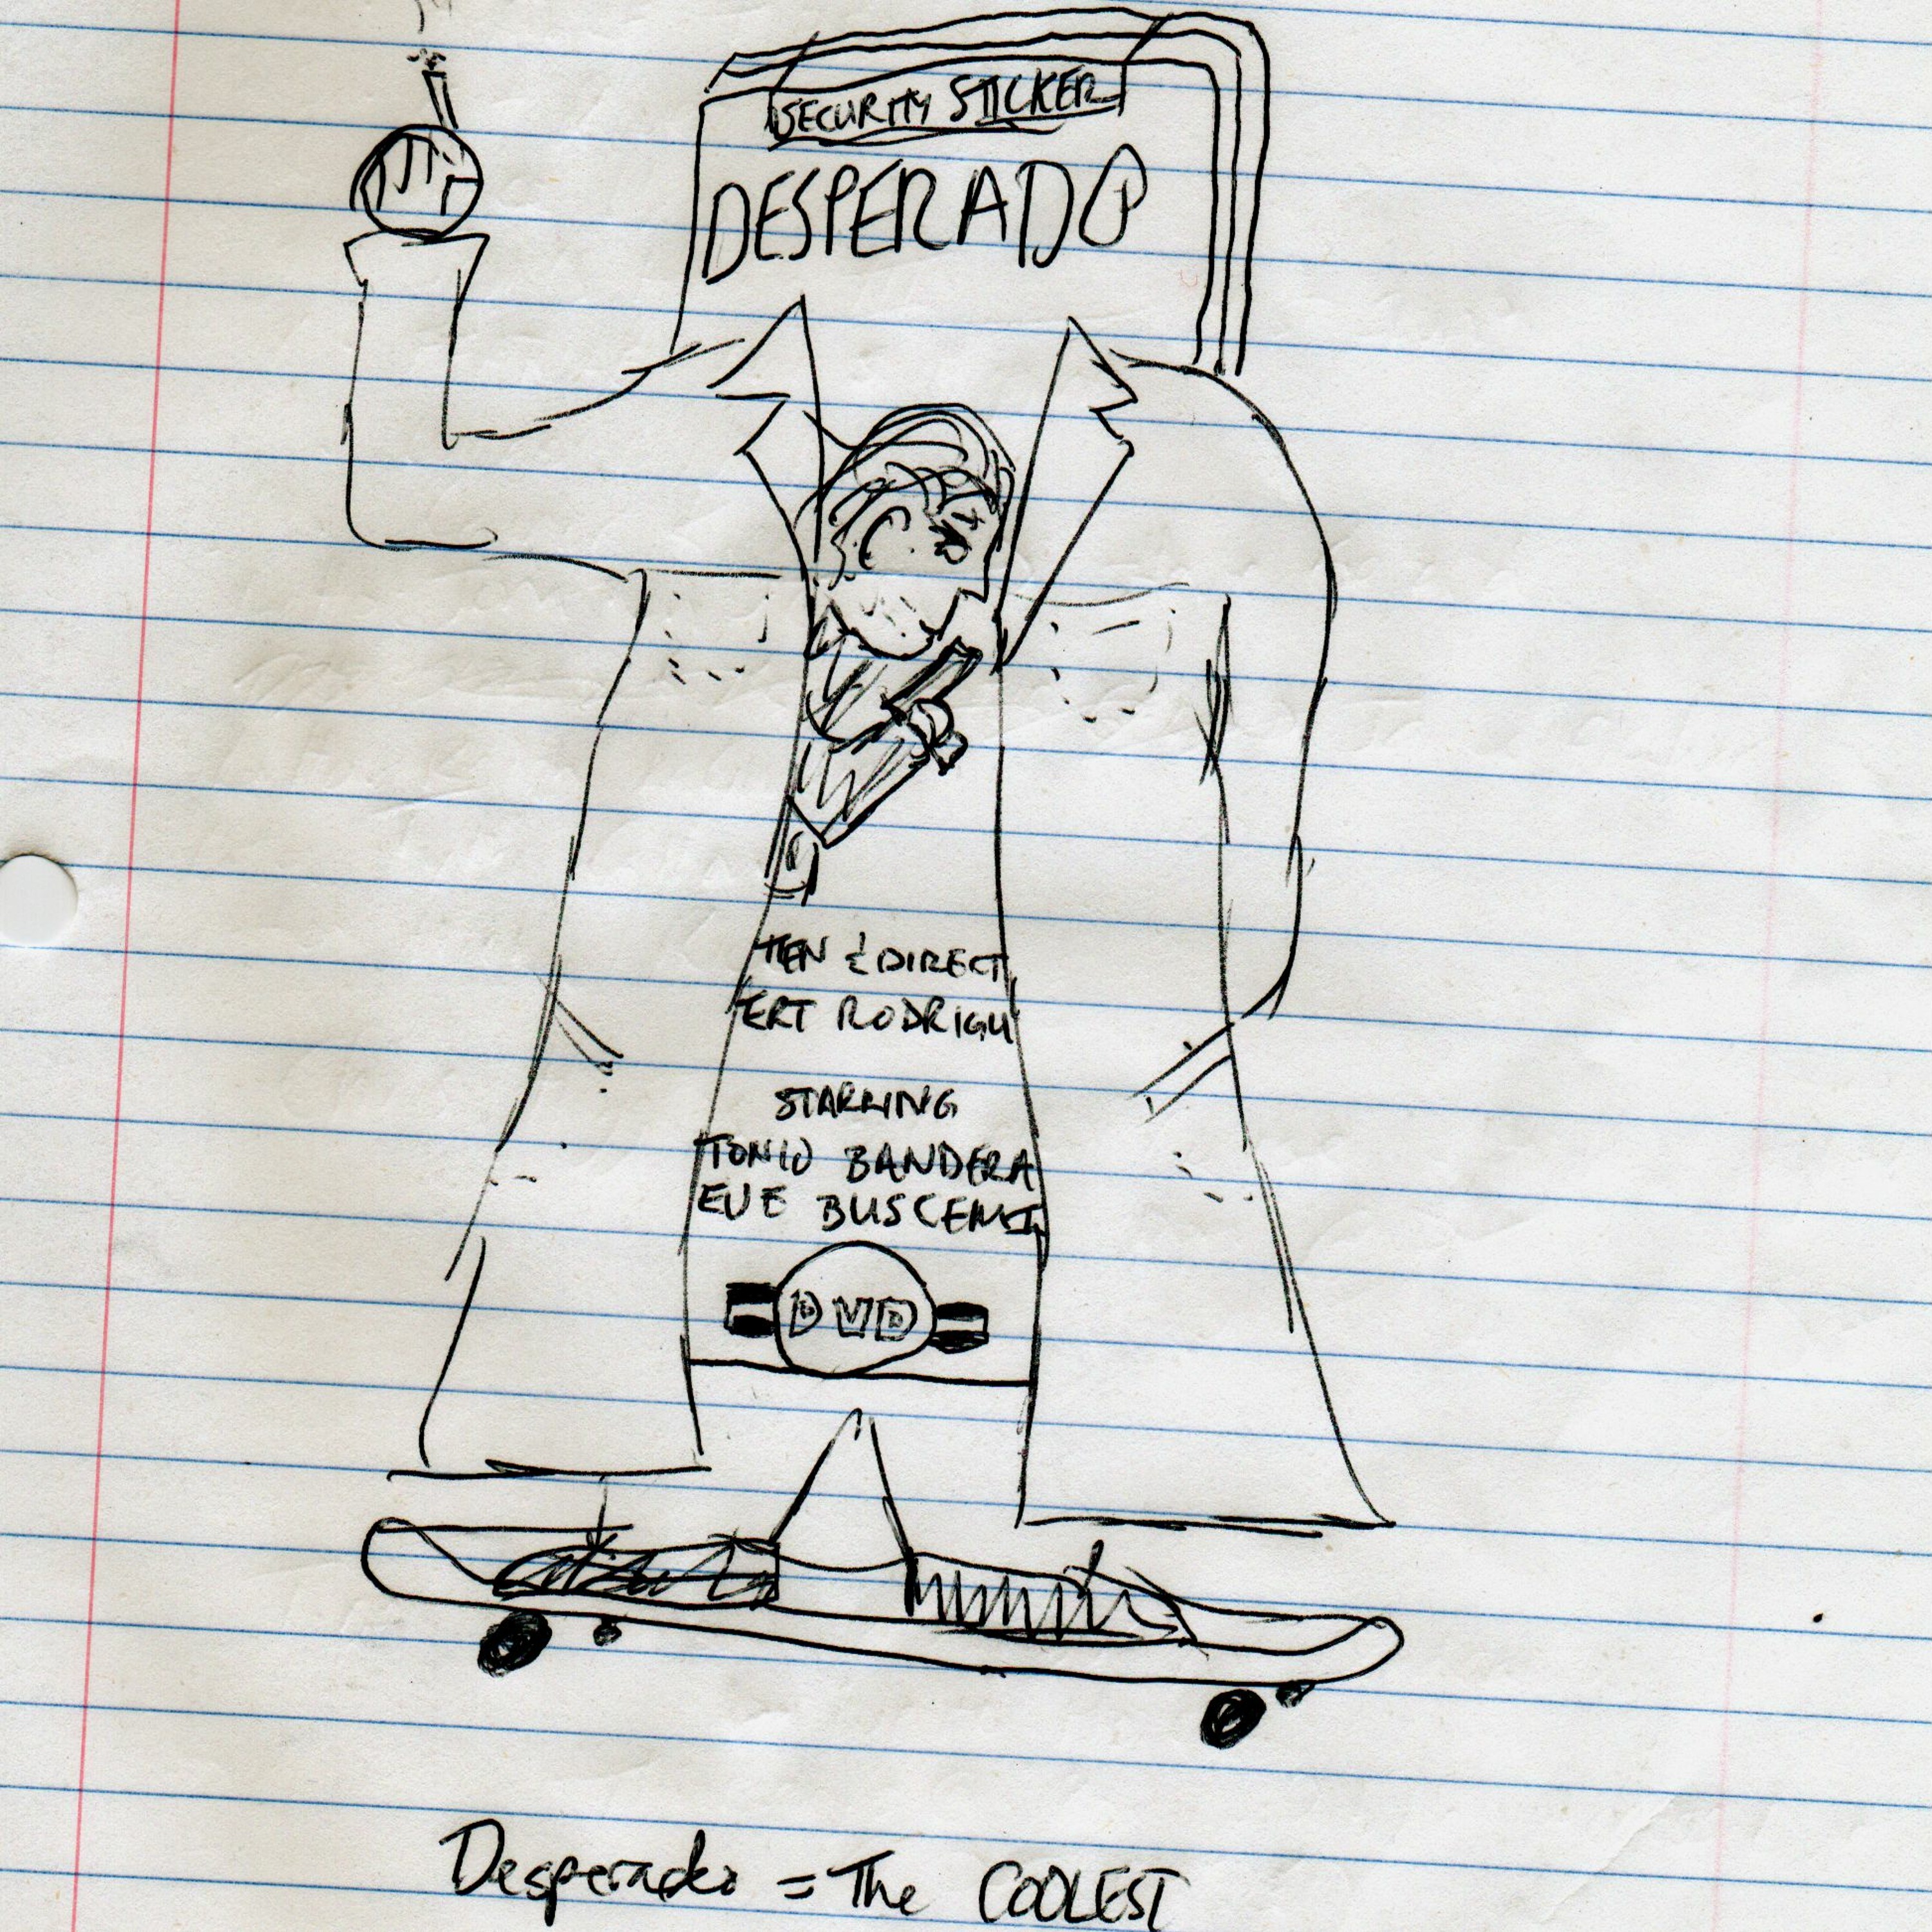 SECURITY STICKER
DESPERADO
TEN & DIRECT
ERT RODRIGU
STARRING
TONIO BANDERA
EVE BUSCEMI
DVD
Desperado = The COOLEST